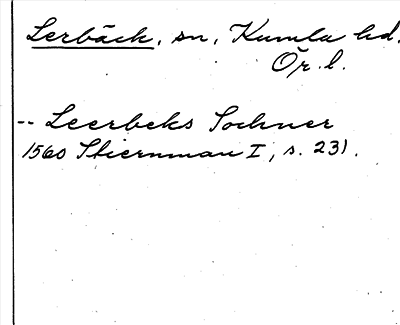 Lerbäck, sn, Kumla hd.
Ör. l.
-- Leerbeks Sochner
1560 Stiernman I, s. 231.